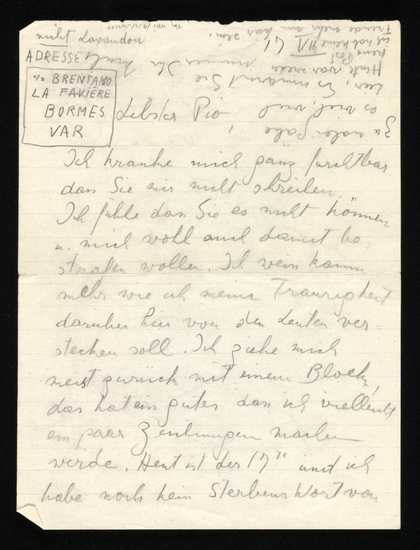 nicht Lavandou
ADRESSE
c/o BRENTANO
LA FAVIÈRE
BORMES
VAR
Liebster Pio
Ich kränke mich ganz furchtbar
dass Sie mir nicht schreiben.
Ich fühle dass Sie es nicht können
u. mich wohl auch damit be-
strafen wollen. Ich weiss kaum
mehr wie ich meine Traurigkeit
darüber hier vor den Leuten ver-
stecken soll. Ich ziehe mich
meist zurück mit einem Block,
das hat ein gutes dass ich vielleicht
ein paar Zeichnungen machen
werde. Heut ist der 17 und ich
habe noch kein Sterbenswort von